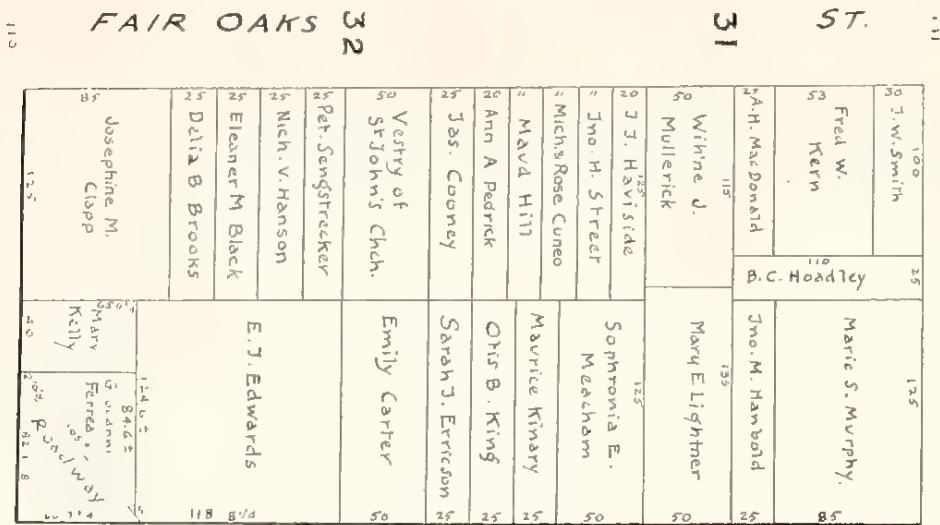 FAIR OAKS
32
31
ST.
110
111
85
Josephine M.
Clapp
125
25
Delia B Brooks
25
Eleaner M Black
25
Nich. V. Hanson
25
Pet. Sengstrecker
50
Vestry of
St John's
Chch.
25
Jas. Cooney
20
Ann A Pedrick
"
Maud Hill
"
Mich. & Rose Cuneo
"
Jno. H. Streer
20
J J. Haviside
125
50
Wih'ne J.
Mullerick
115
25
A. H. MacDonald
53
Fred W.
Kern
30
J. W. Smith
100
110
B. C. Hoadley
25
Mary
Kelly
40
84.6±
Roadway
124.6±
E. J. Edwards
118
Emily Carter
50
Sarah J. Erricson
25
Otis B. King
25
Maurice Kinary
25
Sophronia E.
Meacham
125
50
Mary E Lightner
135
50
Jno. M. Hanbold
25
Marie S. Murphy.
125
85